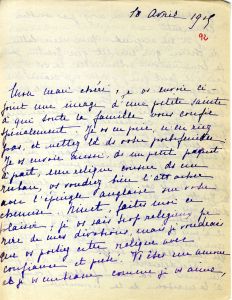 18 Avril 1915
92
Mon mari chéri, je vs envoie ci-
joint une image d'une petite sainte
à qui toute la famille vous confie
spécialement. Je vs en prie, n'en riez
pas, et mettez là ds votre portefeuille.
Je vs envoie aussi, ds un petit paquet
à part, une relique cousue ds un
ruban, vs voudrez bien l'attacher
avec l'épingle anglaise sur votre
chemise. Minet, faites moi ce
plaisir; je vs sais trop religieux pr
rire de mes dévotions, mais je voudrais
que vs portiez cette relique avec
confiance et piété. Vs êtes mon amour
et je vs embrasse comme je vs aime,